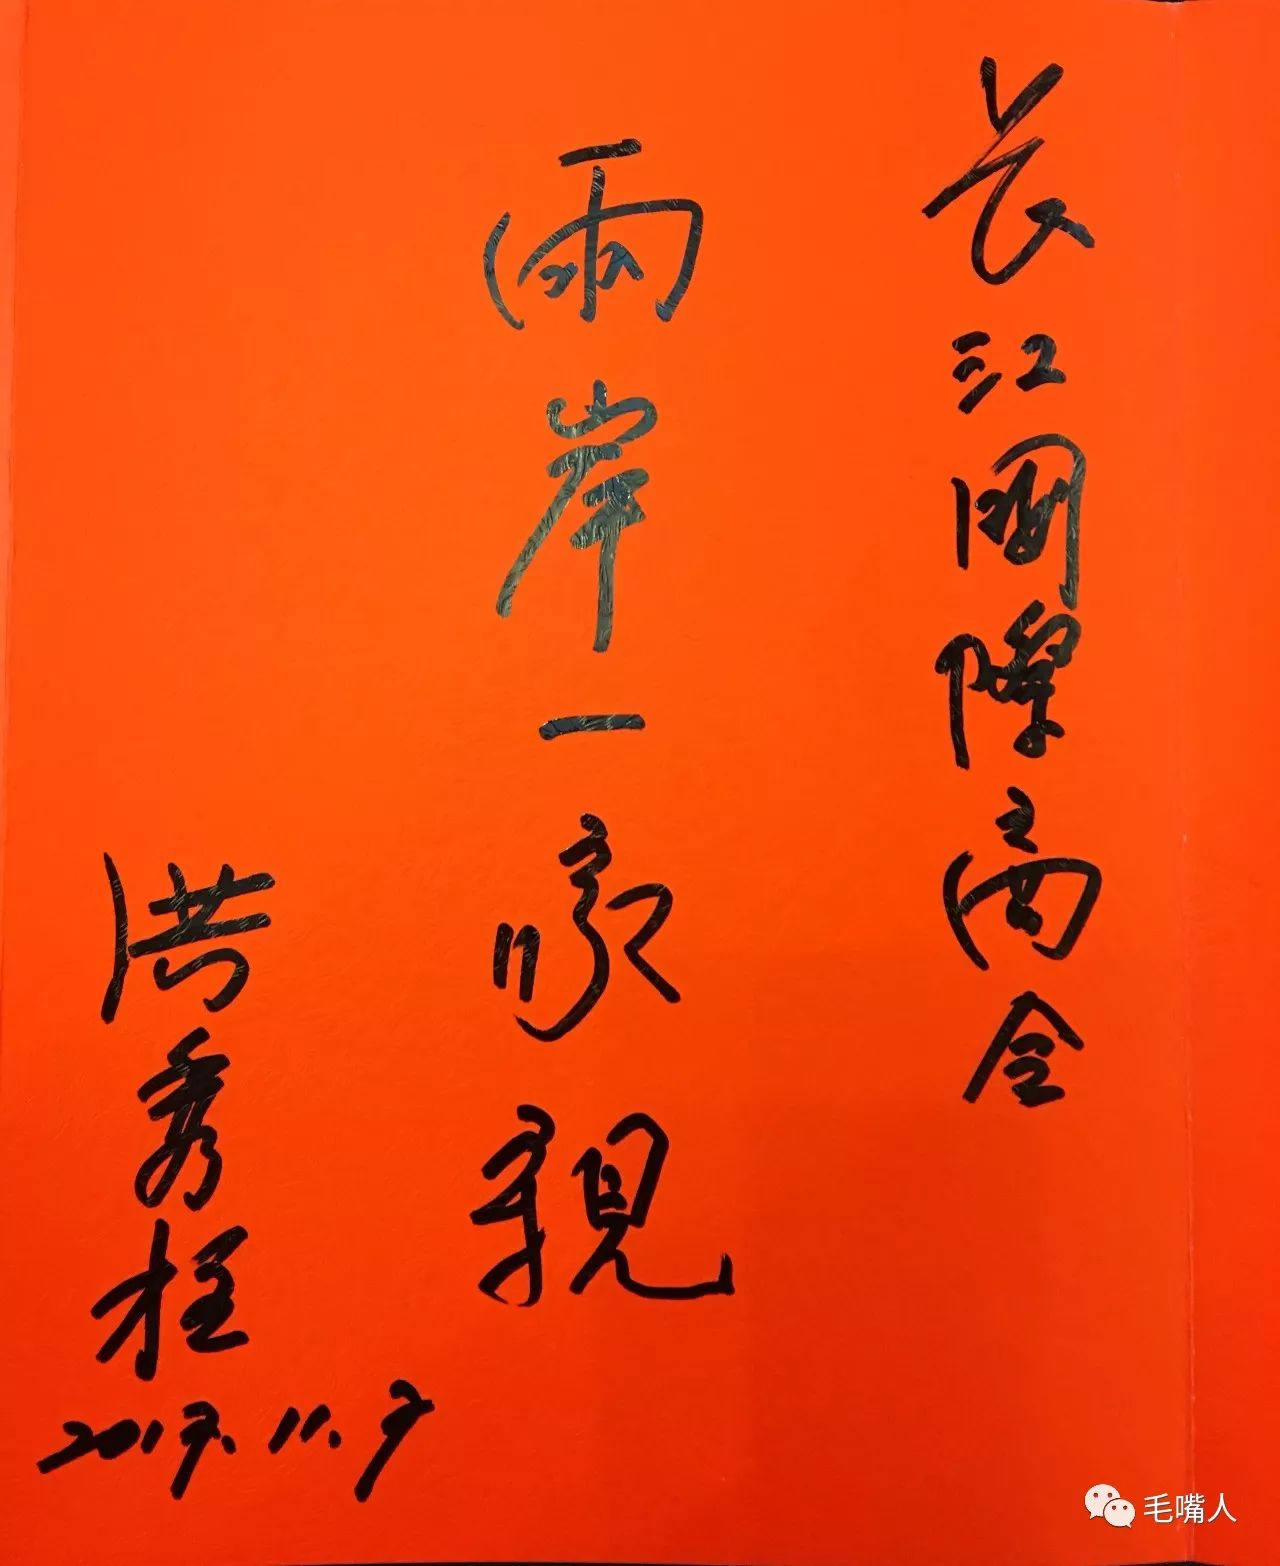 长江國際商会
兩岸一家親
洪秀柱
2017.11.7
毛嘴人